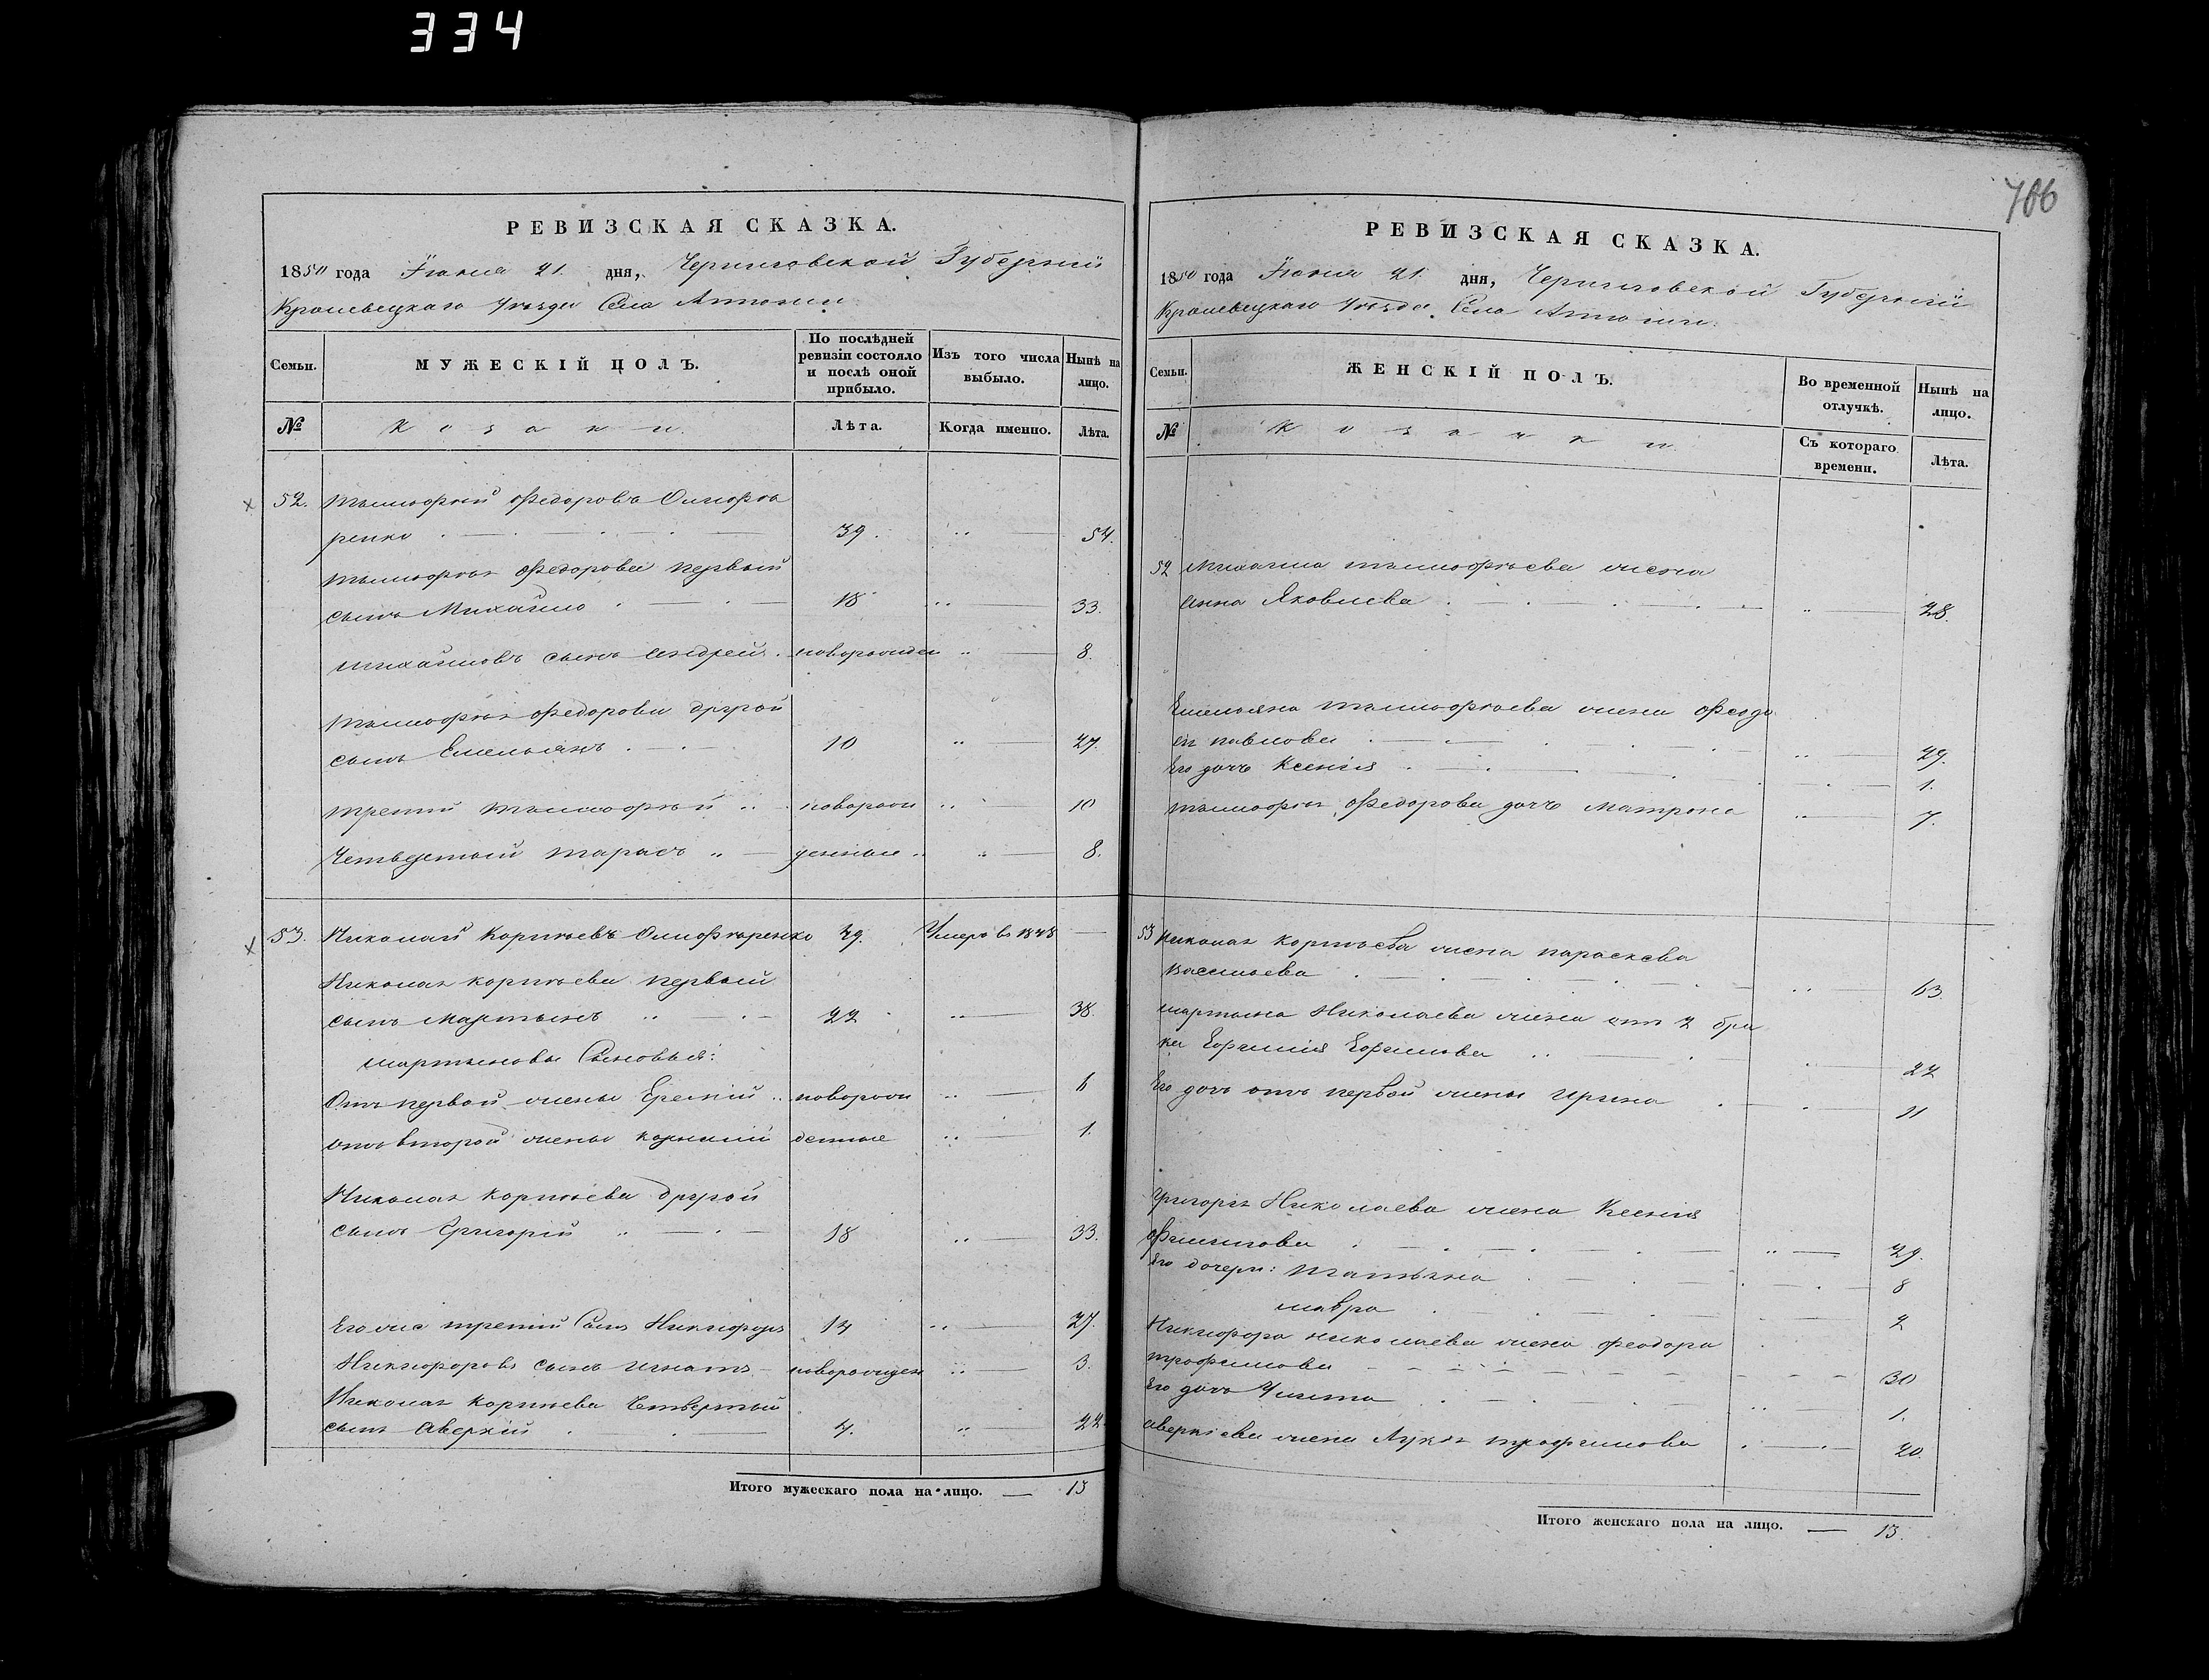 334
706
РЕВИЗСКАЯ СКАЗКА.
1850 года Іюня 21. дня, Черниговской Губерніи
Кролевецкаго Уезда Села
Семьи.
МУЖЕСКІЙ ПОЛЪ.
По послѣдней
ревизіи состояло
и послѣ оной
прибыло.
Изъ того числа
выбыло.
Нынѣ на
лицо.
№
Козаки.
Лѣта.
Когда именно.
Лѣта.
52. Тимофей Федоровъ
ренко 39. 54.
Тимофея Федорова первый
сынъ Михайло 18 33.
Михайловъ сынъ Андрей новорожден 8.
Тимофея Федорова другой
сынъ Емельянъ 10 27.
третій Тимофей новорож 10
Четвертый Тарасъ денные 8.
53. Николай Корнеевъ 49. Умеръ в 1848
Николая Корнеева первый
сынъ Мартынъ 22 38.
Мартыновы Сыновья:
Отъ первой жены новорож 6
отъ второй жены Корнилий денные 1.
Николая Корнеева другой
сынъ Григорій 18 33.
Его же третій Сынъ Никифоръ 14 27.
Никифоровъ сынъ Игнатъ новорожден 3.
Николая Корнеева Четвертый
сынъ Аверкій 7. 22
Итого мужескаго пола на лицо. — 15
РЕВИЗСКАЯ СКАЗКА.
1850 года Іюня 21. дня, Черниговской Губерніи
Кролевецкаго Уезда Села
Семьи.
ЖЕНСКІЙ ПОЛЪ.
Во временной
отлучкѣ.
Нынѣ на
лицо.
№
Козачки
Съ котораго
времени.
Лѣта.
52 Михаила Тимофеева жена
Анна Яковлева 28.
Емельяна Тимофеева жена Феодо
ся Павлова 29.
Его дочь Ксенія 1.
Тимофея Федорова дочь Матрона 7.
53 Николая Корнеева жена Параскева
Васильева 63.
Мартына Николаева жена отъ 2 бра
ка Ефимія Ефимова 27
Его дочь отъ первой жены Ирина 11
Григорія Николаева жена Ксенія
29.
Его дочери: Татьяна 8
Мавра 2
Никифора Николаева жена Феодора
Трофимова 30
Его дочь Улита 1.
Аверкіева жена Трофимова 20.
Итого женскаго пола на лицо. — 13.